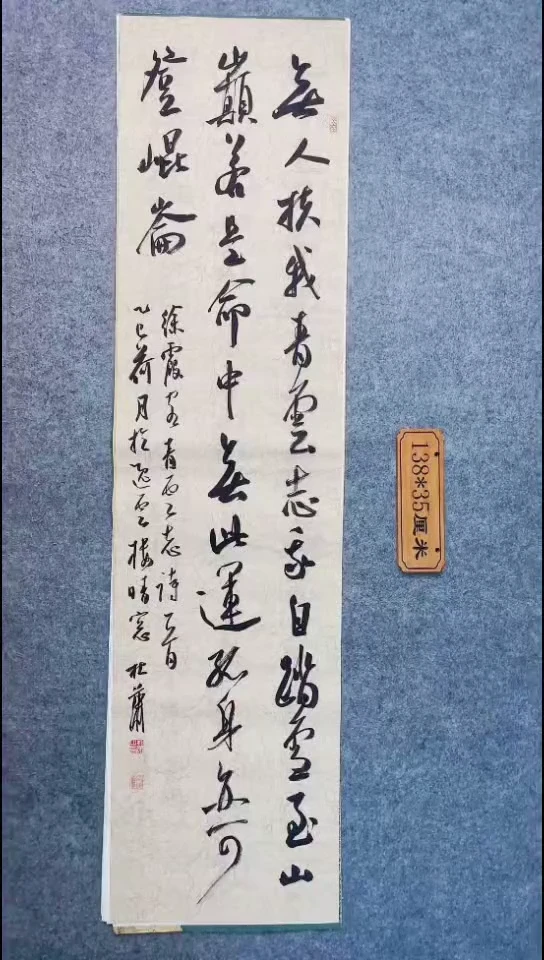 無人扶我青雲志我自踏雪至山
巔若是命中無此運孤身亦可
登崐崙
徐霞客青雲志詩一首
乙巳荷月於逸雲樓晴窓 杜蕭
138*35厘米